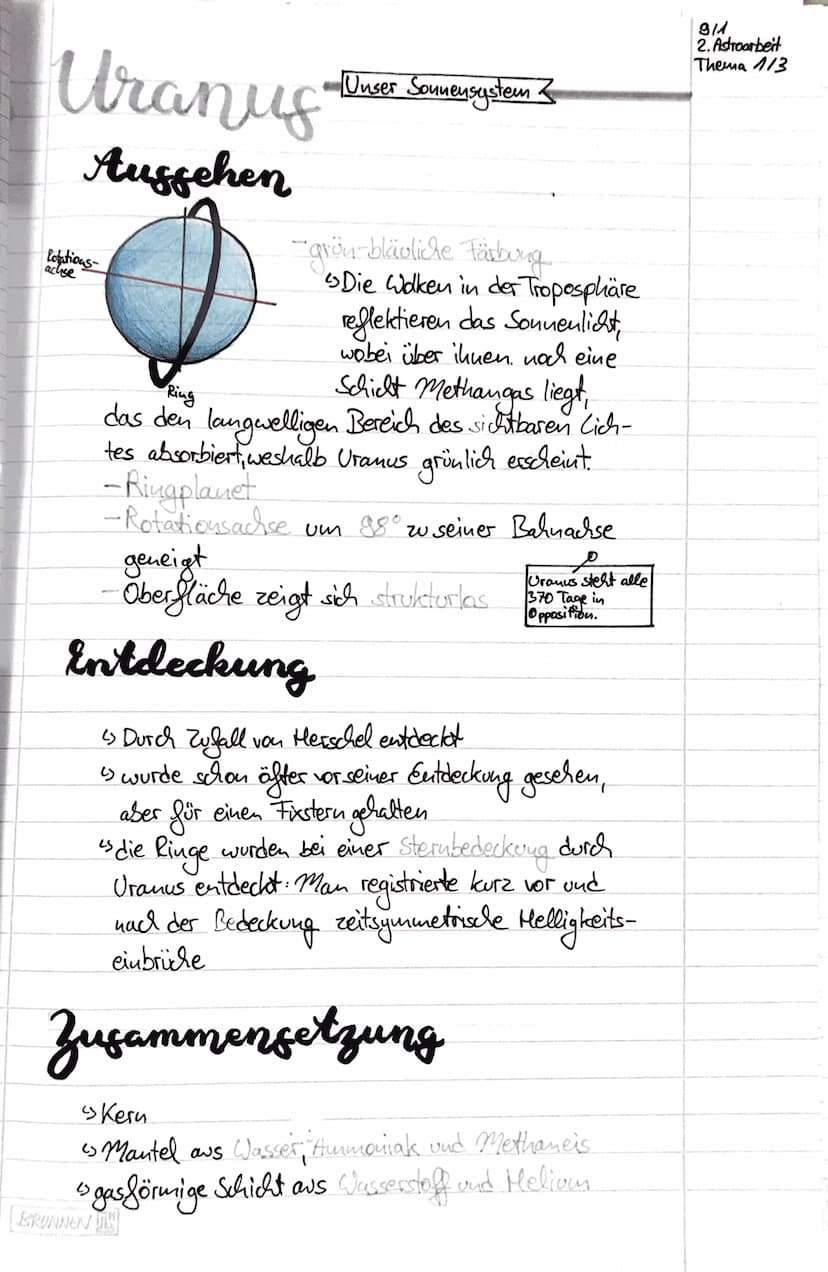 9/1
2. Astroarbeit
Thema 1/3
Uranus
Unser Sonnensystem
Aussehen
Rotations-
achse
Ring
-grün-bläuliche Färbung
↳Die Wolken in der Troposphäre
reflektieren das Sonnenlicht,
wobei über ihnen noch eine
Schicht Methangas liegt,
das den langwelligen Bereich des sichtbaren Lich-
tes absorbiert, weshalb Uranus grünlich erscheint.
-Ringplanet
-Rotationsachse um 98° zu seiner Bahnachse
geneigt
-Oberfläche zeigt sich strukturlos
Uranus steht alle
370 Tage in
Opposition.
Entdeckung
↳ Durch Zufall von Herschel entdeckt
↳ wurde schon öfter vor seiner Entdeckung gesehen,
aber für einen Fixstern gehalten
↳die Ringe wurden bei einer Sternbedeckung durch
Uranus entdeckt: Man registrierte kurz vor und
nach der Bedeckung zeitsymmetrische Helligkeits-
einbrüche
Zusammensetzung
↳Kern
↳Mantel aus Wasser, Ammoniak und Methaneis
↳gasförmige Schicht aus Wasserstoff und Helium
BRUNNEN